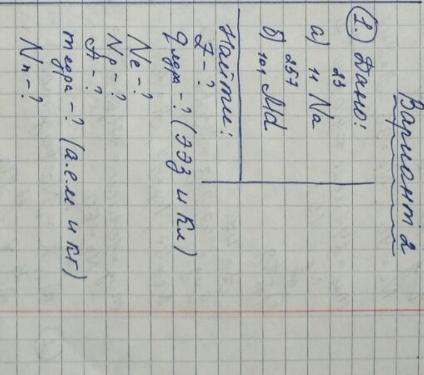 Вариант 2
1. Дано:
а) 23 11 Na
б) 257 101 Md
Найти:
Z - ?
qядра - ? (ЭЭЗ и Кл)
Ne - ?
Np - ?
A - ?
mядра - ? (а.е.м и кг)
Nn - ?